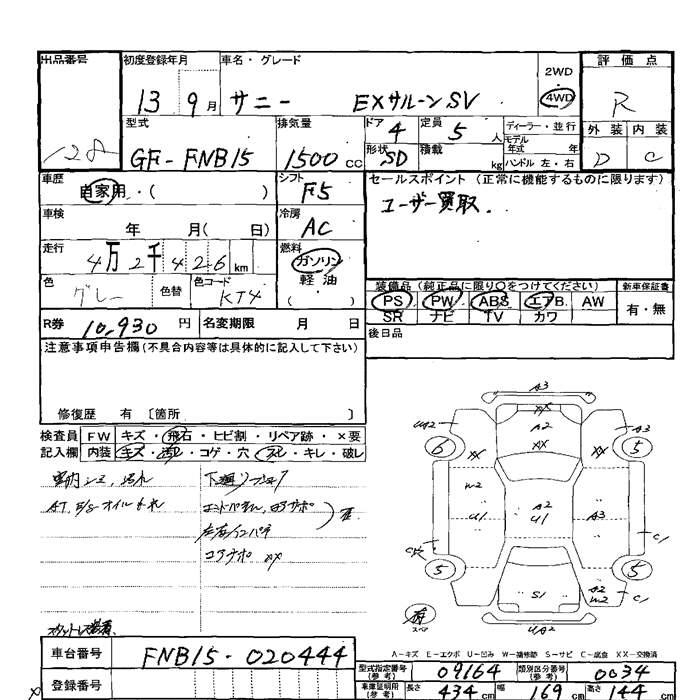 出品番号 初度登録年月 車名・グレード 2WD 評価点
13 9月 サニー EXサルーンSV 4WD R
型式 排気量 ドア 4 定員 5人 ディーラー・並行 外装 内装
128 GF-FNB15 1500cc 形状 SD 積載 kg モデル年式 年 D C
ハンドル 左・右
車歴 自家用・( ) シフト F5 セールスポイント (正常に機能するものに限ります)
車検 年 月( 日) 冷房 AC ユーザー買取.
走行 4万2千426km 燃料 ガソリン
軽油
( )
色 グレー 色替 色コード KT4 装備品 (純正品に限り○をつけてください) 新車保証書
PS PW ABS エアB. AW 有・無
SR ナビ TV カワ
R券 10,930円 名変期限 月 日 後日品
注意事項申告欄(不具合内容等は具体的に記入して下さい)
修復歴 有 〔箇所 〕
検査員 FW キズ・飛石・ヒビ割・リペア跡・×要
記入欄 内装 キズ・汚レ・コゲ・穴・スレ・キレ・破レ
A3
XX
A2
XX
UA2 A3
6 5
XX XX
W2
U1 A2
U1 A3
C1
5 5
S1 A2
W2 C1
UA2
スペア
車台番号 FNB15-020444
A-キズ E-エクボ U-凹み W-補修跡 S-サビ C-腐食 XX-交換済
登録番号
型式指定番号(参考) 09164 類別区分番号(参考) 0034
車庫証明用(参考) 長さ 434cm 幅 169cm 高さ 144cm